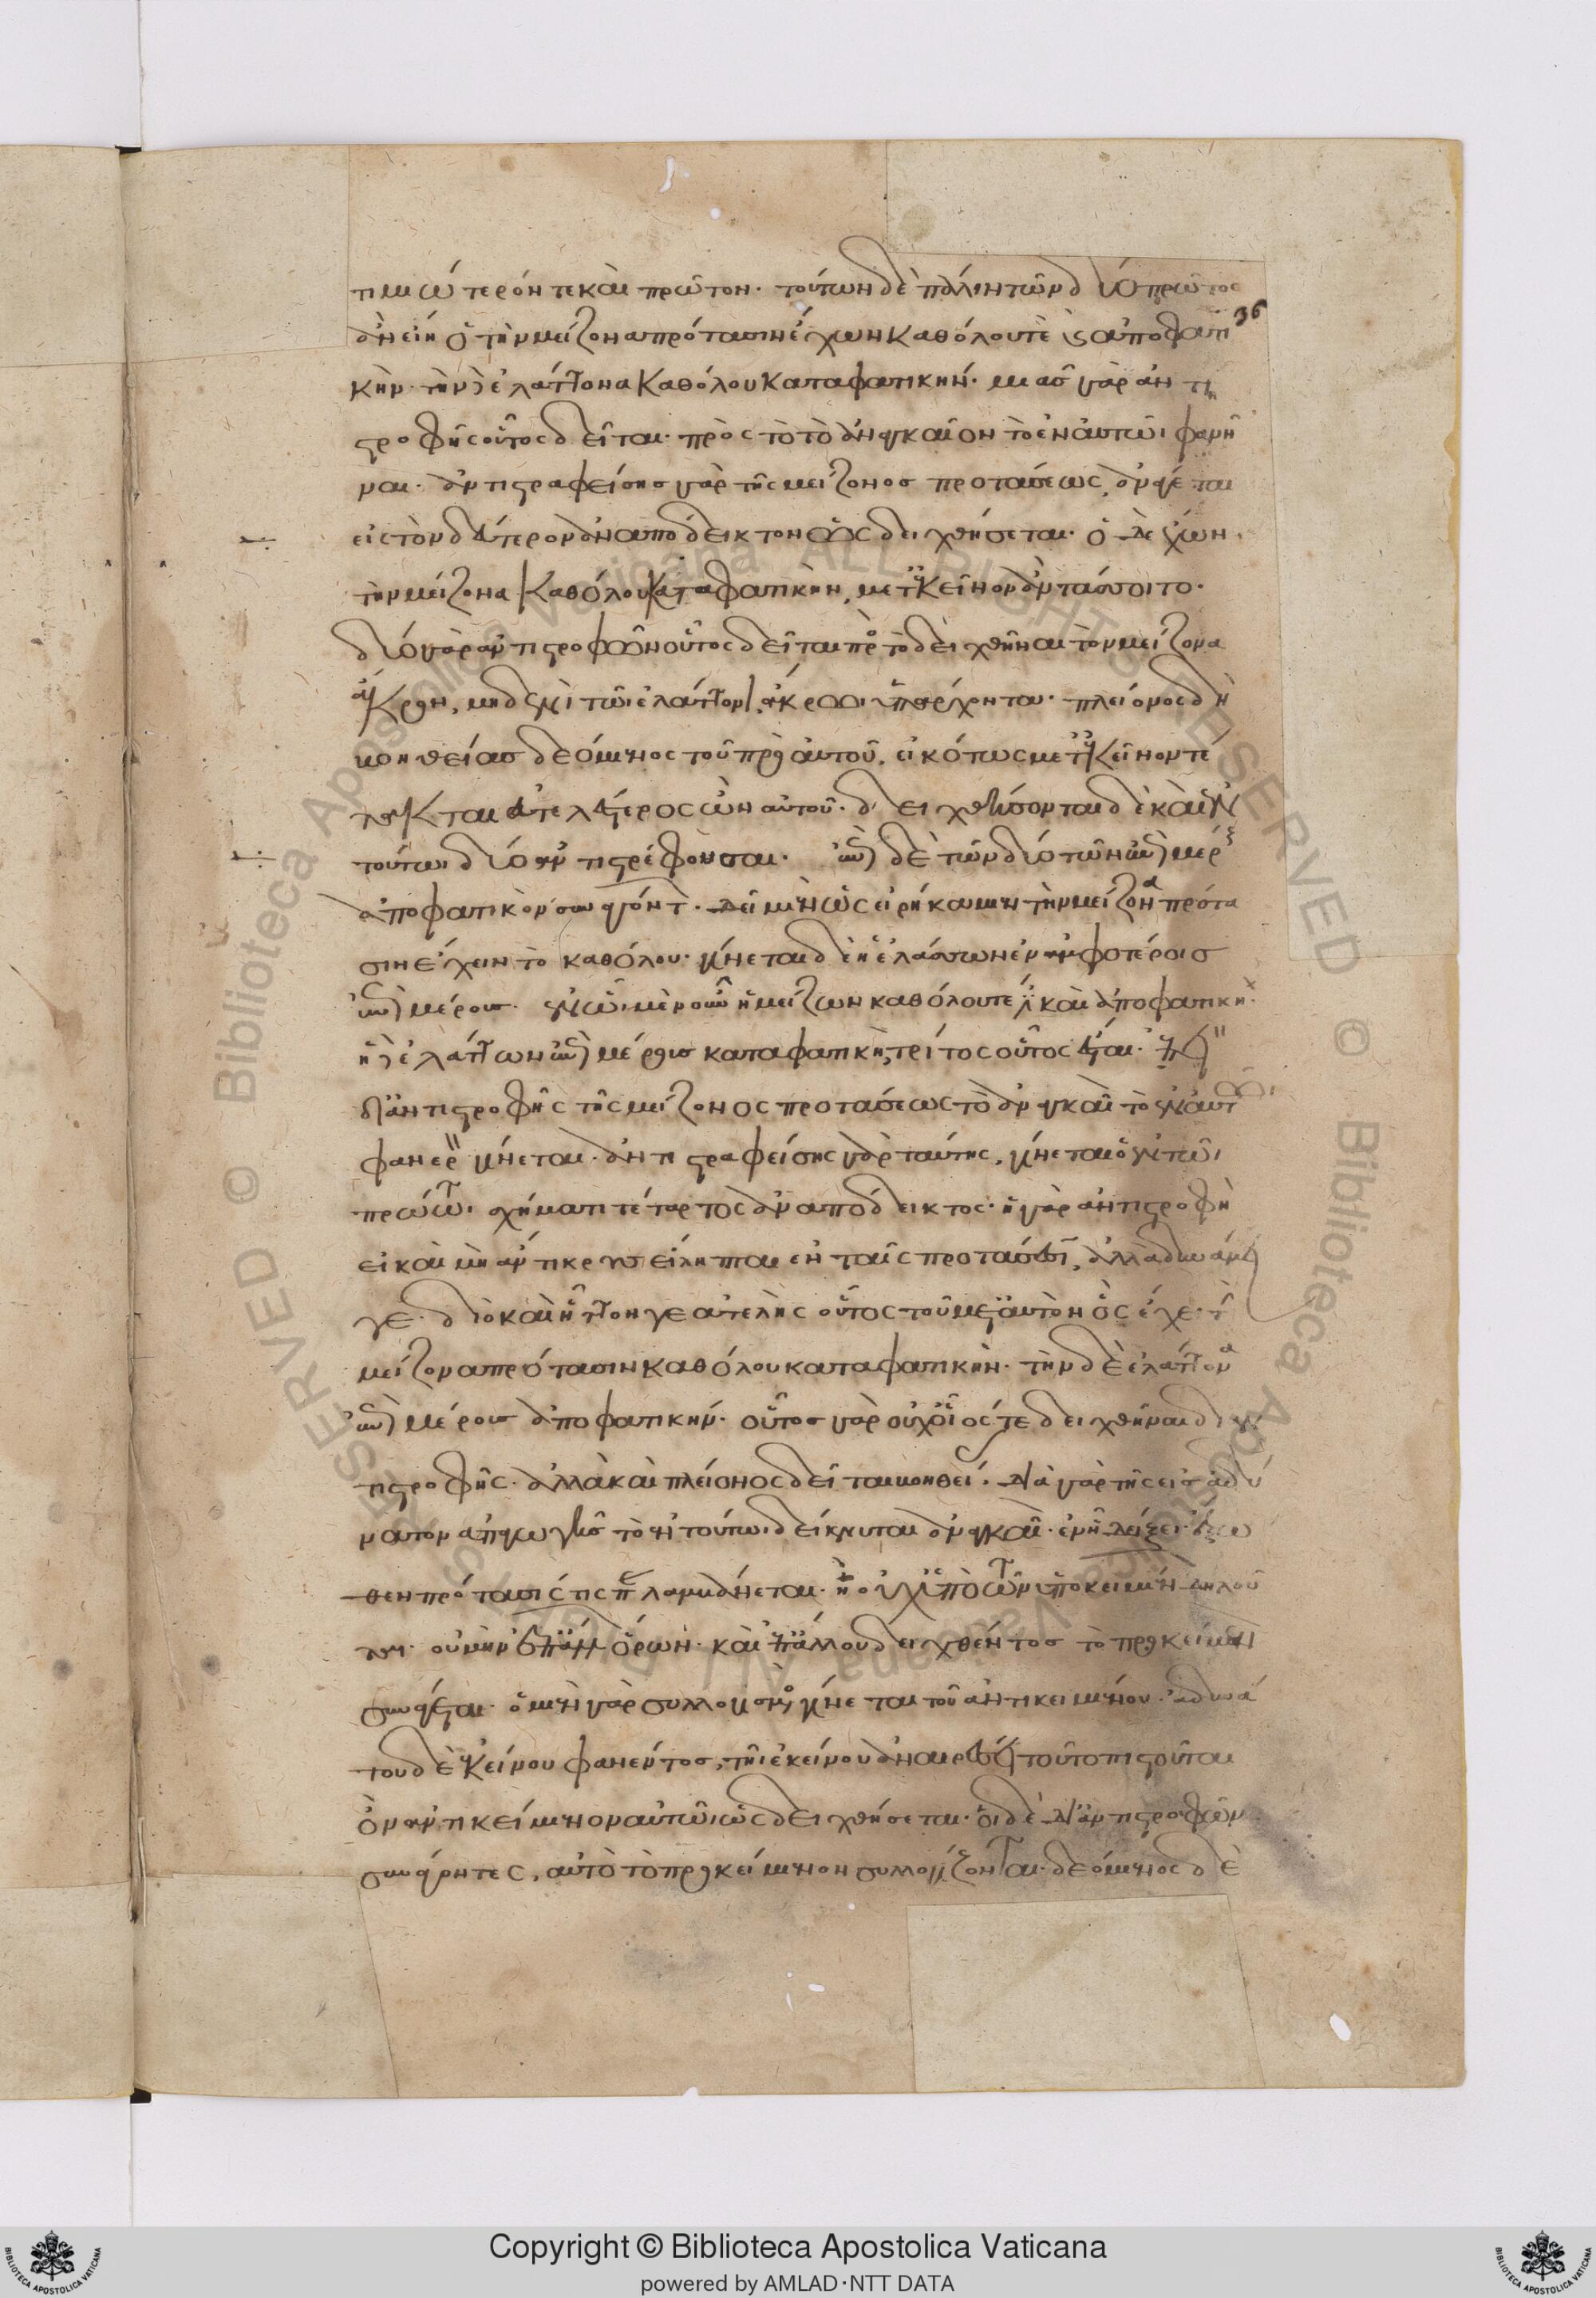 36
τιμιώτερόν τε καὶ πρῶτον· τούτων δὲ πάλιν τῶν δύο πρῶτος
ἂν εἴη ὁ τὴν μείζονα πρότασιν ἔχων καθόλου τε καὶ ἀποφατι
κὴν· τὴν δὲ ἐλάττονα καθόλου καταφατικήν· μιᾶς γὰρ ἀντι
στροφῆς οὗτος δεῖται· πρὸς τὸ τὸ ἀναγκαῖον τὸ ἐν αὐτῶι φανῆ
ναι· ἀντιστραφείσης γὰρ τῆς μείζονος προτάσεως, ἀνάγεται
εἰς τὸν δεύτερον ἀναπόδεικτον ὡς δειχθήσεται· ὁ δὲ ἔχων
τὴν μείζονα καθόλου καταφατικὴν, μετ' ἐκεῖνον ἂν τάσσοιτο·
δύο γὰρ ἀντιστροφῶν οὗτος δεῖται πρὸς τὸ δειχθῆναι τὸν μείζονα
ἄκρον, μηδενὶ τῶι ἐλάττονι ἄκρωι ὑπάρχοντα· πλείονος δὴ
βοηθείας δεόμενος τοῦ πρὸ αὐτοῦ, εἰκότως μετ' ἐκεῖνον τέ
τακται ἀτελέστερος ὢν αὐτοῦ· δειχθήσονται δὲ καὶ ἐν
τούτωι δύο ἀντιστρέφουσαι· ἐπὶ δὲ τῶν δύο τῶν ἐπὶ μέρους
ἀποφατικὸν συναγόντων· δεῖ μὲν ὡς εἰρήκαμεν τὴν μείζονα πρότα
σιν ἔχειν τὸ καθόλου· γίνεται δὲ ἡ ἐλάσσων ἐν ἀμφοτέροις
ἐπὶ μέρους· ἐν ὧι μὲν οὖν ἡ μείζων καθόλου τέ ἐστι καὶ ἀποφατικὴ
ἡ δὲ ἐλάττων ἐπὶ μέρους καταφατικὴ, τρίτος οὗτος ἔσται·
δι' ἀντιστροφῆς τῆς μείζονος προτάσεως τὸ ἀναγκαῖον τὸ ἐν αὐτῶι
φανερὸν γίνεται· ἀντιστραφείσης γὰρ ταύτης, γίνεται ὁ ἐν τῶι
πρώτωι σχήματι τέταρτος ἀναπόδεικτος· ἡ γὰρ ἀντιστροφὴ
εἰ καὶ μὴ ἄντικρυς εἴληπται ἐν ταῖς προτάσεσιν, ἀλλὰ δυνάμει
γε· διὸ καὶ ἧττόν γε ἀτελὴς οὗτος τοῦ μετ' αὐτὸν ὃς ἔχει τὴν
μείζονα πρότασιν καθόλου καταφατικὴν· τὴν δὲ ἐλάττονα
ἐπὶ μέρους ἀποφατικήν· οὗτος γὰρ οὐχ οἷός τε δειχθῆναι δι' ἀν
τιστροφῆς· ἀλλὰ καὶ πλείονος δεῖται βοηθείας· διὰ γὰρ τῆς εἰς ἀδύ
νατον ἀπαγωγῆς τὸ ἐν τούτωι δείκνυται ἀναγκαῖον· ἐν ἧι δείξει ἔξω
θεν πρότασίς τις προσλαμβάνεται· ἣ οὐχ ὑπὸ τῶν ὑποκειμένων δηλοῦ
ται· οὐ μὴν ὅρων· καὶ ἐπ' ἄλλου δειχθέντος τὸ προκείμενον
συνάγεται· ὁ μὲν γὰρ συλλογισμὸς γίνεται τοῦ ἀντικειμένου· ἀδυνά
του δὲ ἐκείνου φανέντος, τῆι ἐκείνου ἀναιρέσει τοῦτο πιστοῦται
ὂν ἀντικείμενον αὐτῶι ὡς δειχθήσεται· οἱ δὲ δι' ἀντιστροφῶν
συνάγοντες, αὐτὸ τὸ προκείμενον συλλογίζονται· δεόμενος δὲ
Copyright © Biblioteca Apostolica Vaticana
powered by AMLAD·NTT DATA